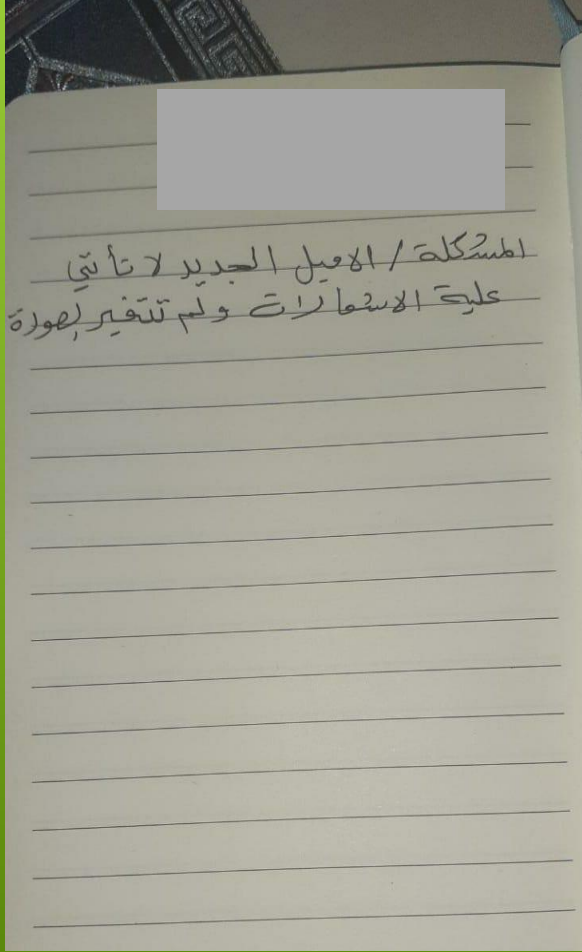 المشكلة / الاميل الجديد لا تأتي
علية الاشعارات ولم تتغير الصورة